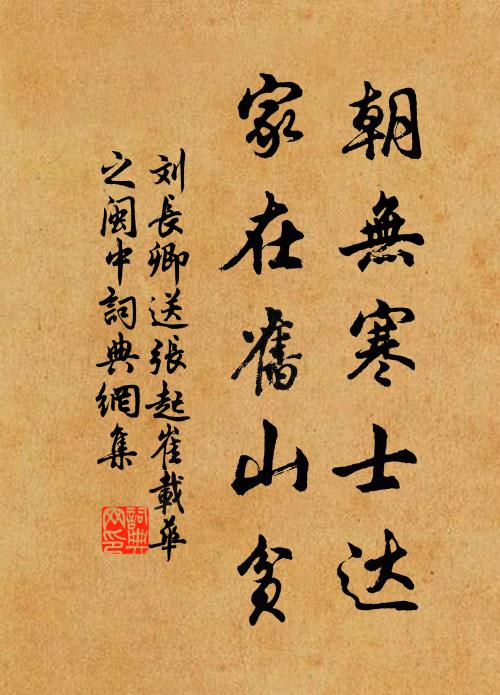 朝無寒士达
家在舊山貧
刘長卿送張起崔載華
之閩中詞典網集
詞典
网印